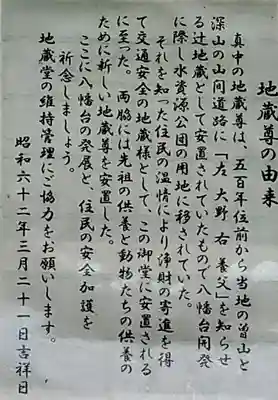 地蔵尊の由来
真中の地蔵尊は、五百年位前から当地の曽山と
深山の山間道路に「左 大野 右 養父」を知らせ
る辻地蔵として安置されていたもので八幡台開発
に際し水資源公団の用地に移されていた。
それを知った住民の温情により浄財の寄進を得
て交通安全の地蔵様として、この御堂に安置される
に至った。両脇には先祖の供養と動物たちの供養の
ために新しい地蔵尊を安置した。
ここに八幡台の発展と、住民の安全加護を
祈念しましょう。
地蔵堂の維持管理にご協力をお願いします。
昭和六十二年三月二十一日吉祥日